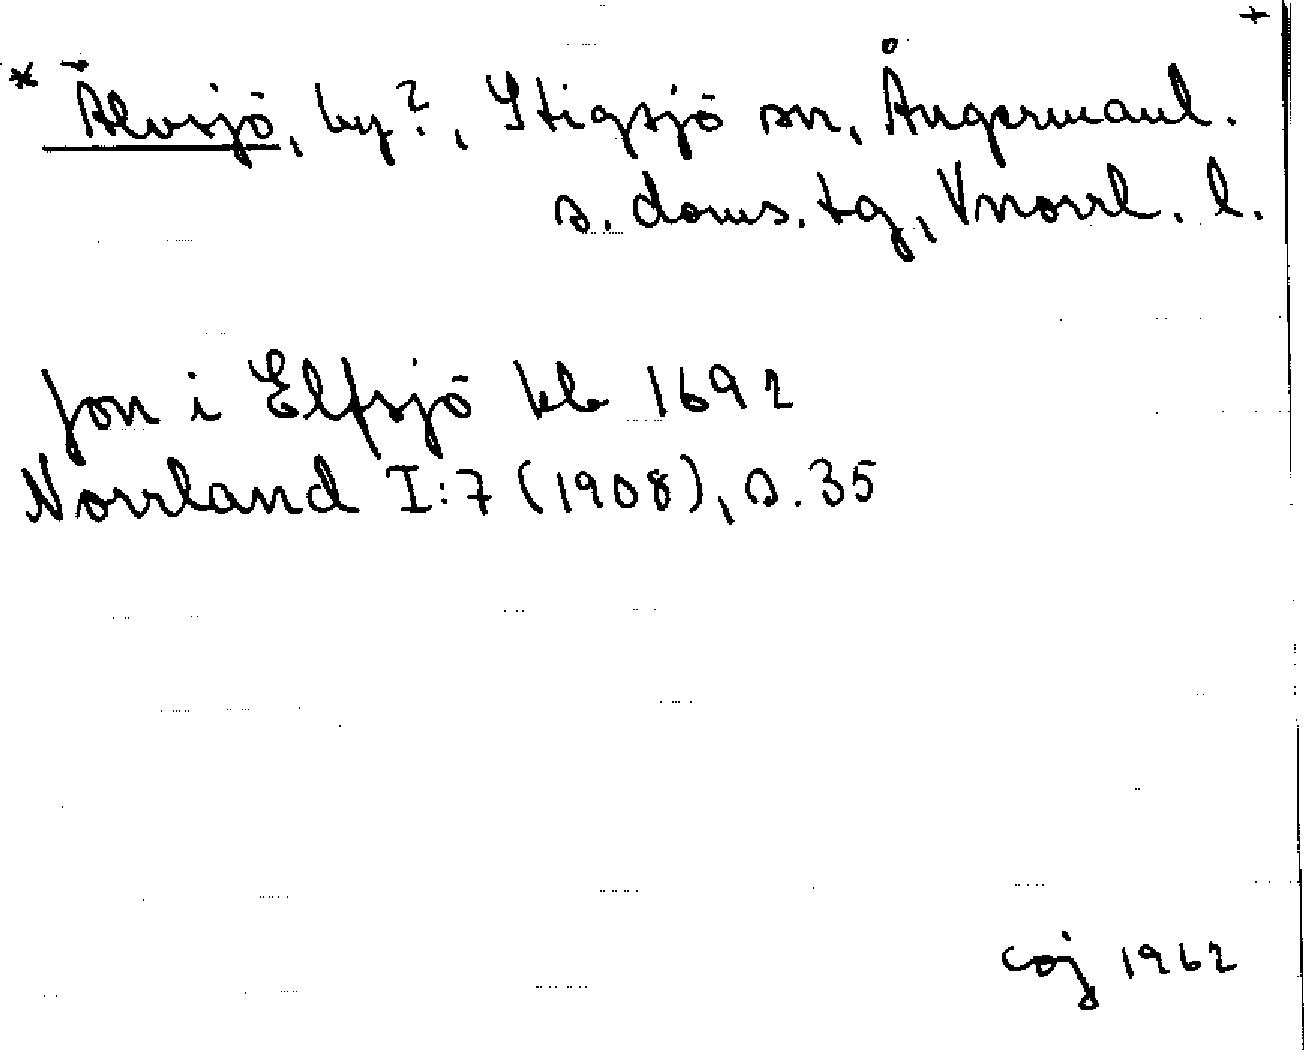 * Älvsjö, by?, Stigsjö sn, Ångermanl.
s. doms. tg, Vnorrl. l.
Jon i Elfsjö kb 1692
Norrland I:7 (1908), s. 35
coj 1962